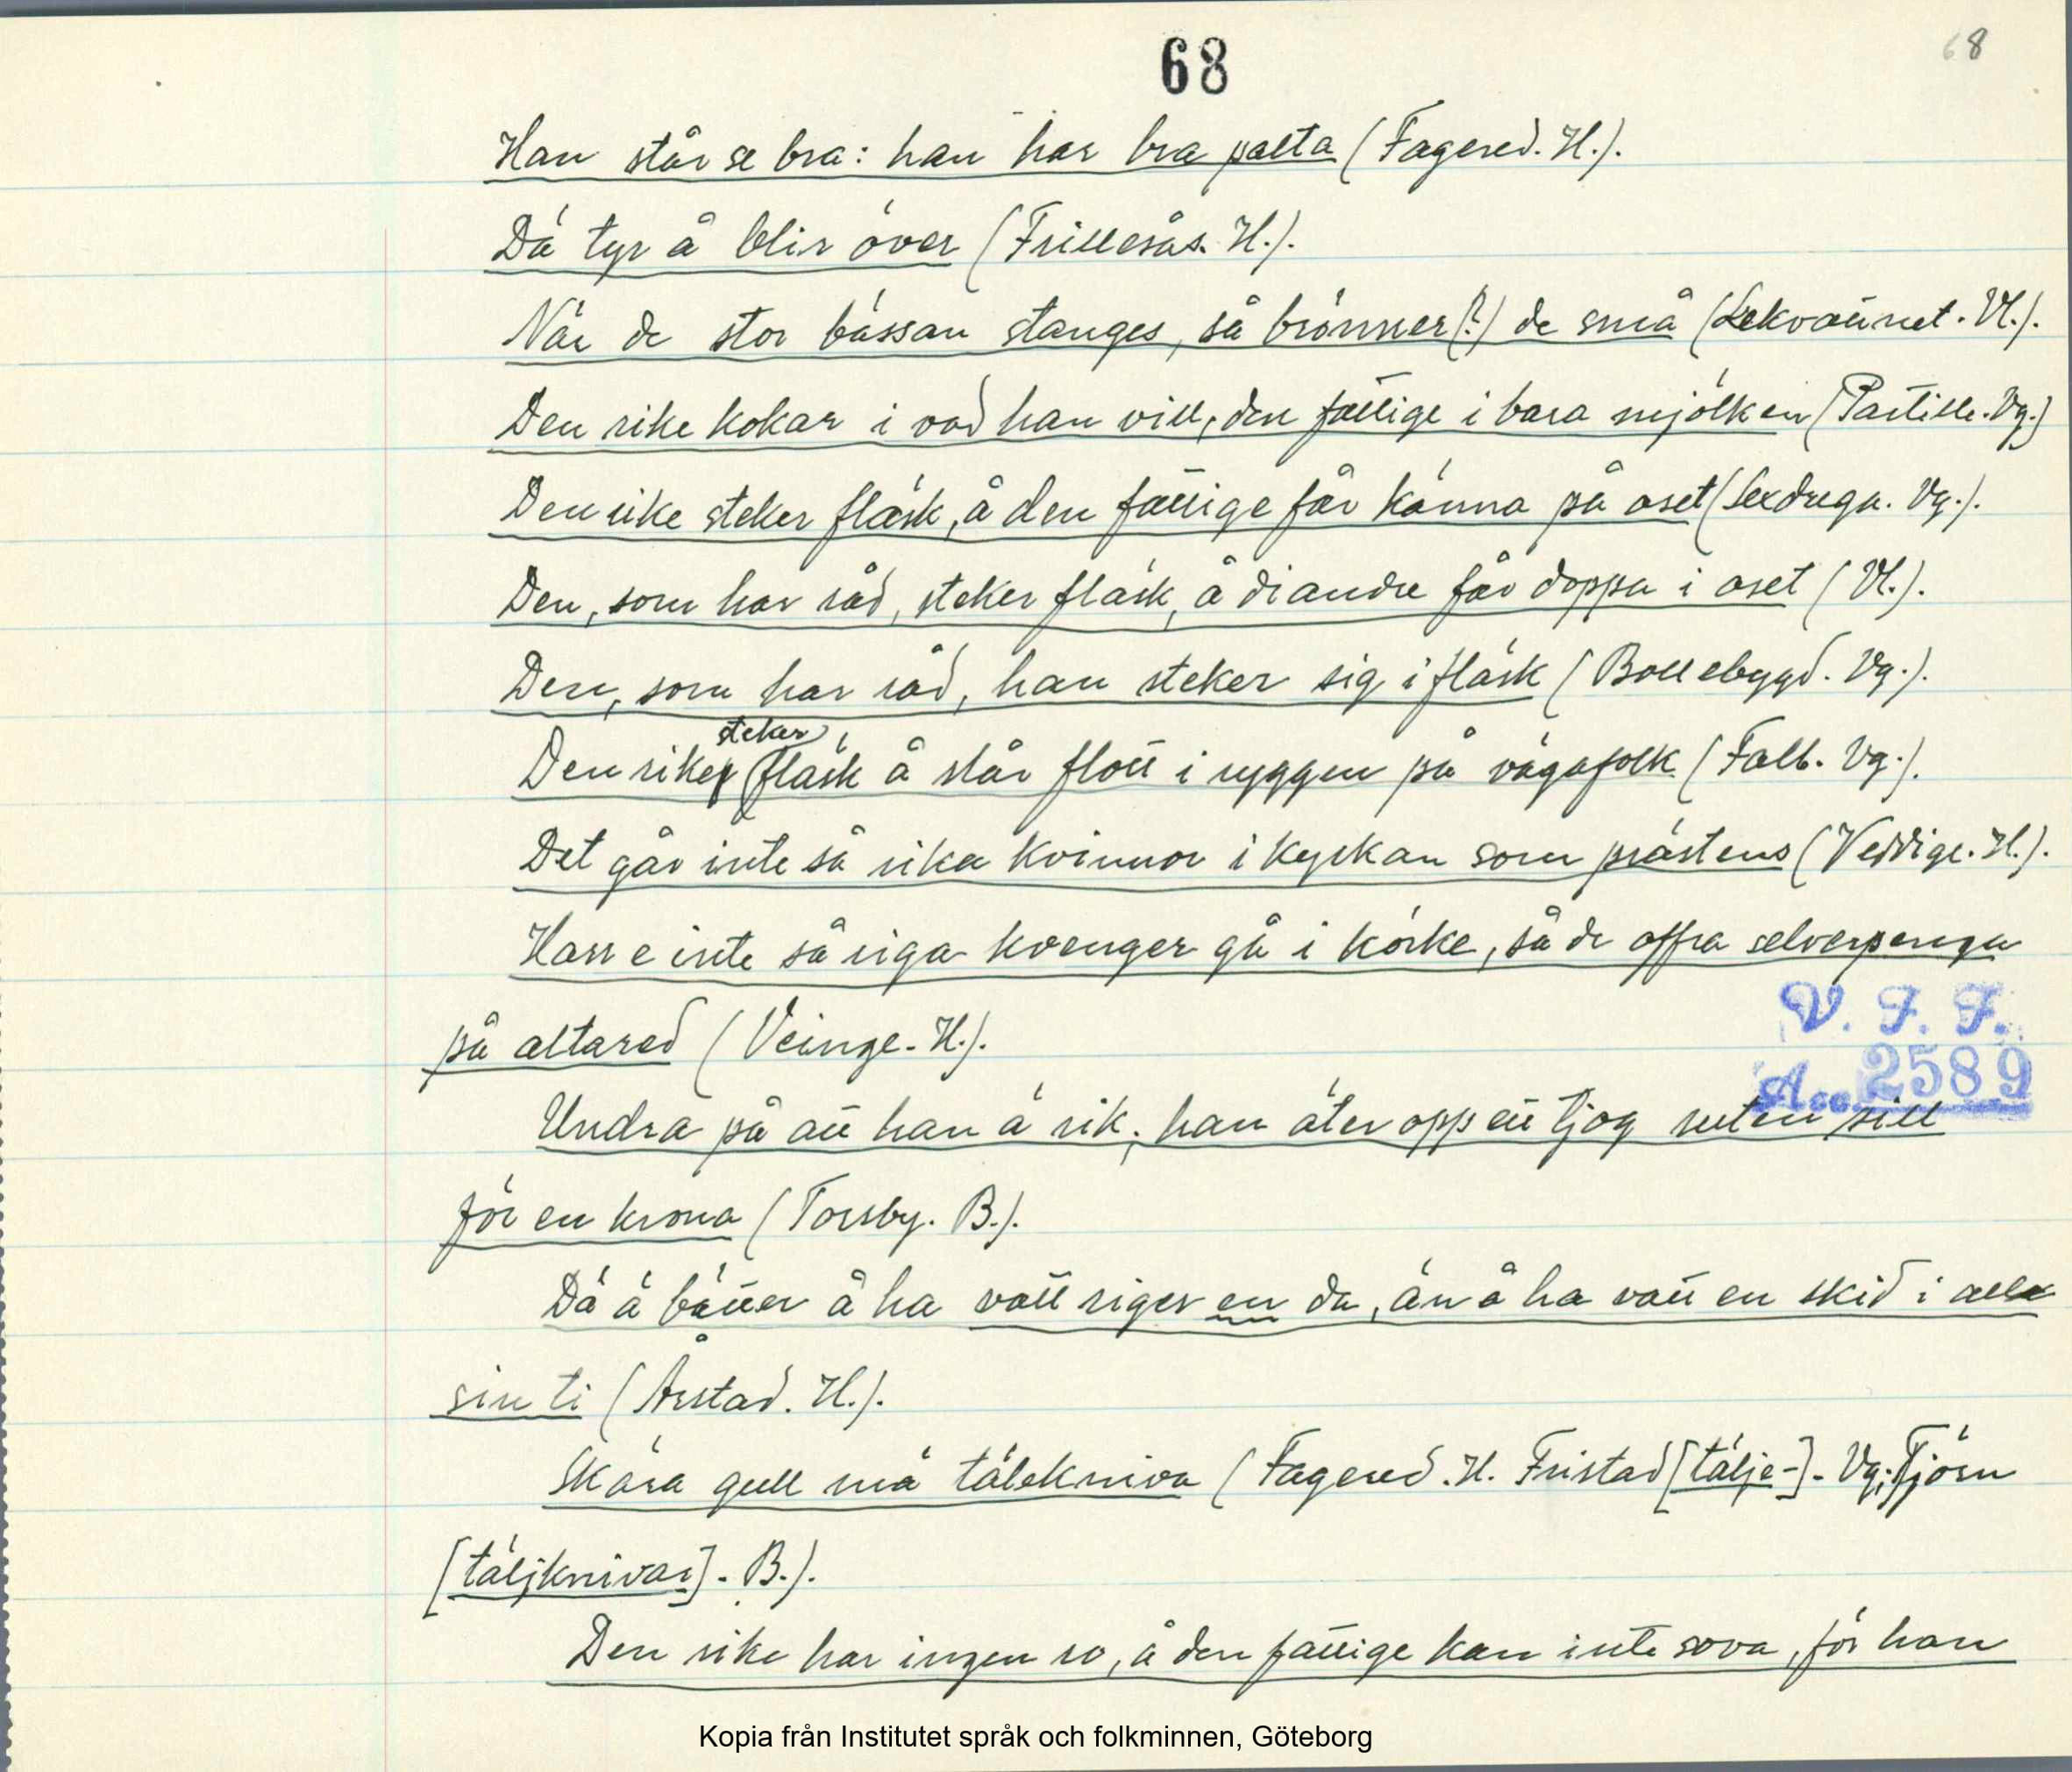 68
68
Han står se bra: han har bra palta (Fagered. H.).
Dä tyr å blir över (Frillesås. H.).
När de stor bässan stanges, så brönner(?) de små (Lekvattnet. Vl.).
Den rike kokar i vad han vill, den fattige i bara mjölken (Partille. Vg.)
Den rike steker fläsk, å den fattige får känna på oset (Sexdrega. Vg.).
Den, som har råd, steker fläsk, å di andre får doppa i oset (Vl.).
Den, som har råd, han steker sig i fläsk (Bollebygd. Vg.).
steker
Den rike fläsk å slår flott i ryggen på vägafolk (Falb. Vg.).
Det går inte så rika kvinnor i kyrkan som prästens (Veddige. H.).
Harr e inte så riga kvenger gå i körke, så de offra selverpenga
på altared (Veinge. H.).
V. F. F.
Acc. 2589
Undra på att han ä rik; han äter opp ett tjog rutten sill
för en krona (Torsby. B.).
Dä ä bätter å ha vatt riger en da, än å ha vatt en skid i alla
sin ti (Årstad. H.).
Skära gull mä tälekniva (Fagered. H. Fristad [tälje-]. Vg; Tjörn
[täljknivar]. B.).
Den rike har ingen ro, å den fattige kan inte sova, för han
Kopia från Institutet språk och folkminnen, Göteborg